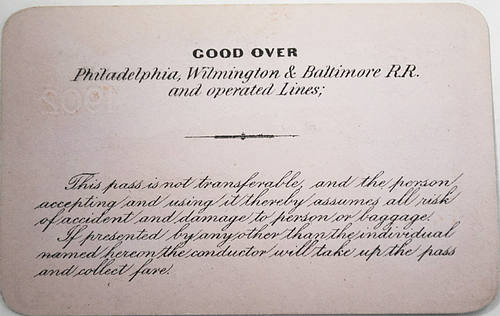 GOOD OVER
Philadelphia, Wilmington & Baltimore R.R.
and operated Lines;
1902
This pass is not transferable, and the person
accepting and using it thereby assumes all risk
of accident and damage to person or baggage.
If presented by any other than the individual
named hereon the conductor will take up the pass
and collect fare.